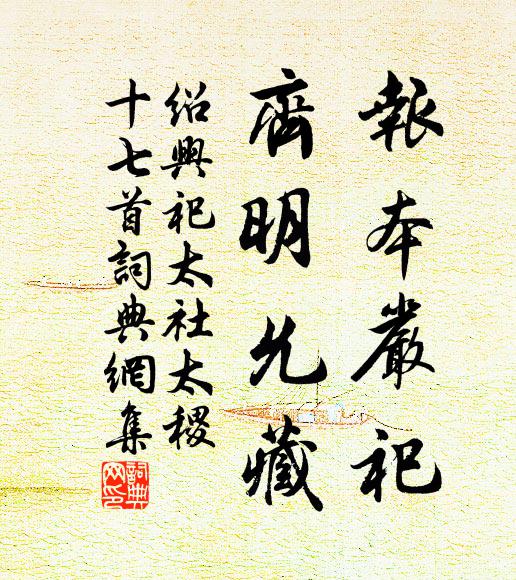 報本嚴祀
齊明允藏
紹興祀太社太稷
十七首詞典網集
詞典網印